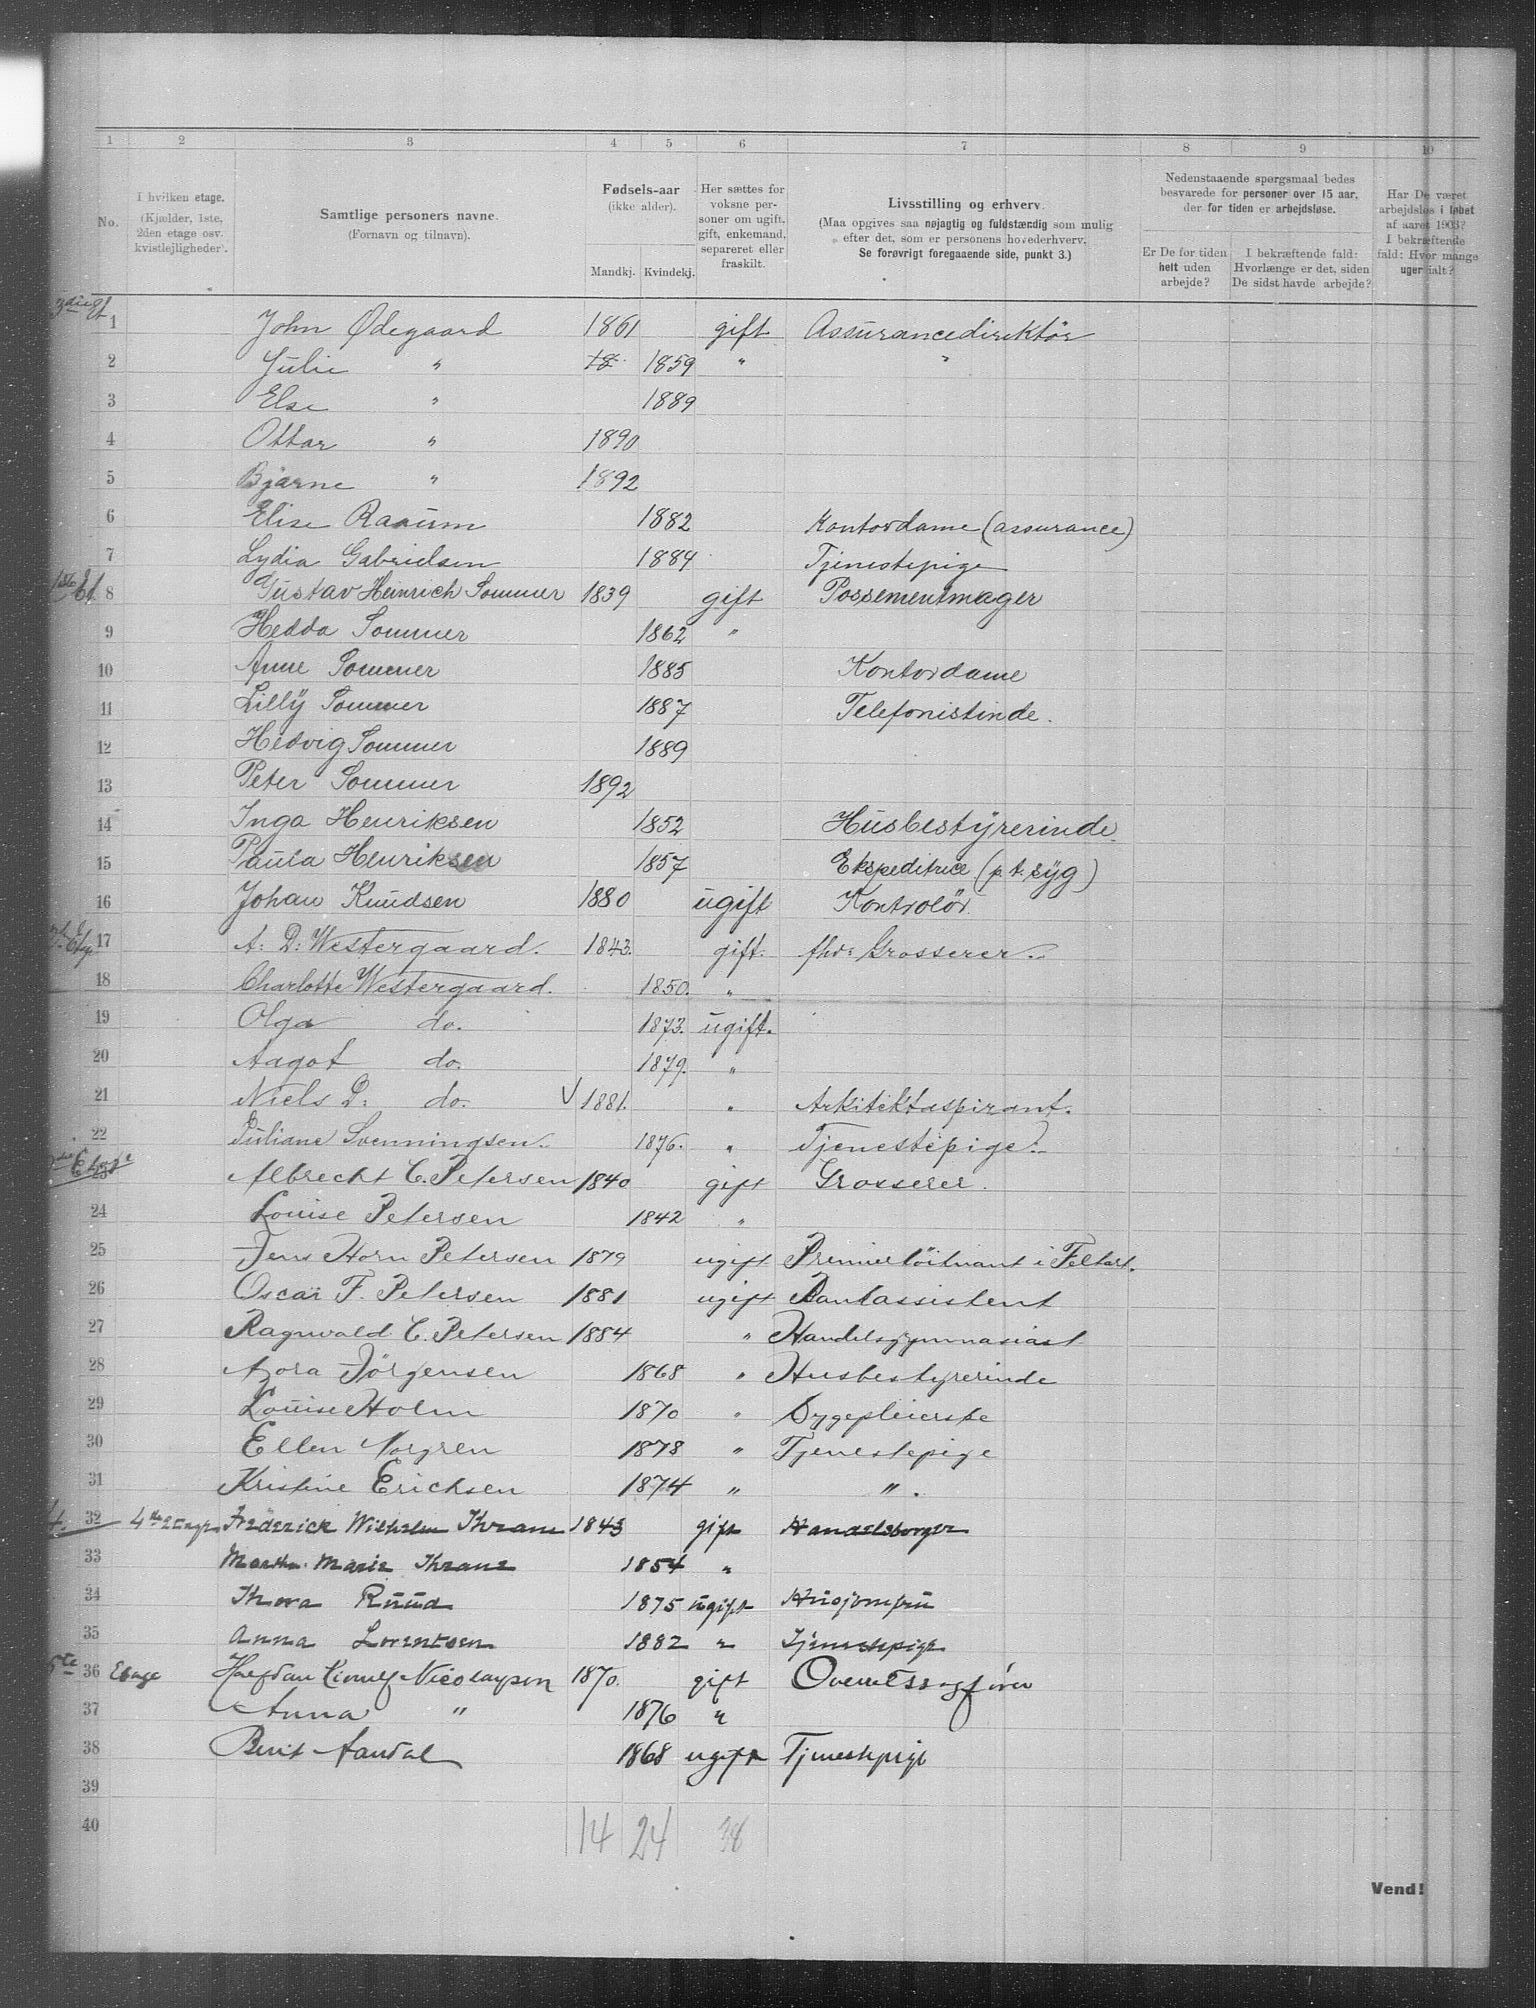 1 2 3 4 5 6 7 8 9 10
No.
I hvilken etage.
(Kjælder, 1ste,
2den etage osv.
kvistleiligheder).
Samtlige personers navne.
(Fornavn og tilnavn).
Fødsels-aar
(ikke alder).
Mandkj. Kvindekj.
Her sættes for
voksne per-
soner om ugift,
gift, enkemand,
separeret eller
fraskilt.
Livsstilling og erhverv.
(Maa opgives saa nøjagtig og fuldstændig som mulig
efter det, som er personens hovederhverv.
Se forøvrigt foregaaende side, punkt 3.)
Nedenstaaende spørgsmaal bedes
besvarede for personer over 15 aar,
der for tiden er arbejdsløse.
Er De for tiden
helt uden
arbejde?
I bekræftende fald:
Hvorlænge er det, siden
De sidst havde arbejde?
Har De været
arbejdsløs i løbet
af aaret 1903?
I bekræftende
fald: Hvor mange
uger ialt?
1 John Ødegaard 1861 gift Assurancedirektör
2 Julie " 18 1859 " "
3 Else " 1889
4 Ottar " 1890
5 Bjarne " 1892
6 Elise Raaum 1882 Kontordame (assurance)
7 Lydia Gabrielsen 1884 Tjenestepige
1ste Et 8 Gustav Heinrich Sommer 1839 gift Possementmager
9 Hedda Sommer 1862 "
10 Anne Sommer 1885 Kontordame
11 Lilly Sommer 1887 Telefonistinde.
12 Hedvig Sommer 1889
13 Peter Sommer 1892
14 Inga Henriksen 1852 Husbestyrerinde
15 Paula Henriksen 1857 Ekspeditrice (p.t. syg)
16 Johan Knudsen 1880 ugift Kontrolör.
17 A. D. Westergaard. 1843. gift. fhv: Grosserer.
18 Charlotte Westergaard. 1850. "
19 Olga do. 1873. ugift.
20 Aagot do. 1879. "
21 Niels D. do. √ 1881. " Arkitektaspirant.
22 Juliane Svenningsen. 1876. " Tjenestepige.
23 Albrecht C. Petersen 1840 gift Grosserer.
24 Louise Petersen 1842 "
25 Jens Horn Petersen 1879 ugift Premierlöitnant i Feltart.
26 Oscar F. Petersen 1881 ugift Bankassistent
27 Ragnvald C. Petersen 1884 " Handelsgymnasiast
28 Azora Jörgensen 1868 " Husbestyrerinde
29 Louise Holm 1870 " Sygepleierske
30 Ellen Norgren 1878 " Tjenestepige
31 Kristine Ericksen 1874 " " .
4. 32 4de Etage Fredérick Wilhelm Thrane 1843 gift Handelsborger
33 Martha Marie Thrane 1854 "
34 Thora Ruud 1875 ugift Husjomfru
35 Anna Lorentsen 1882 " Tjenestepige
5te 36 Etage Halfdan Nicolaysen 1870. gift Overretssagfører
37 Anna " 1876 "
38 Berit Aandal 1868 ugift Tjenestepige
39
40
14 24 38
Vend!